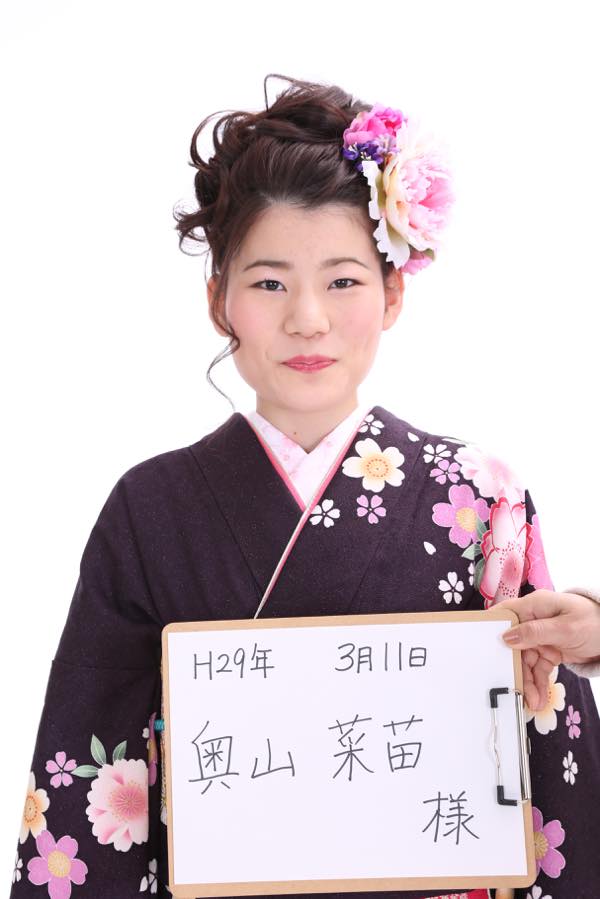 H29年 3月11日
奥山 菜苗
様